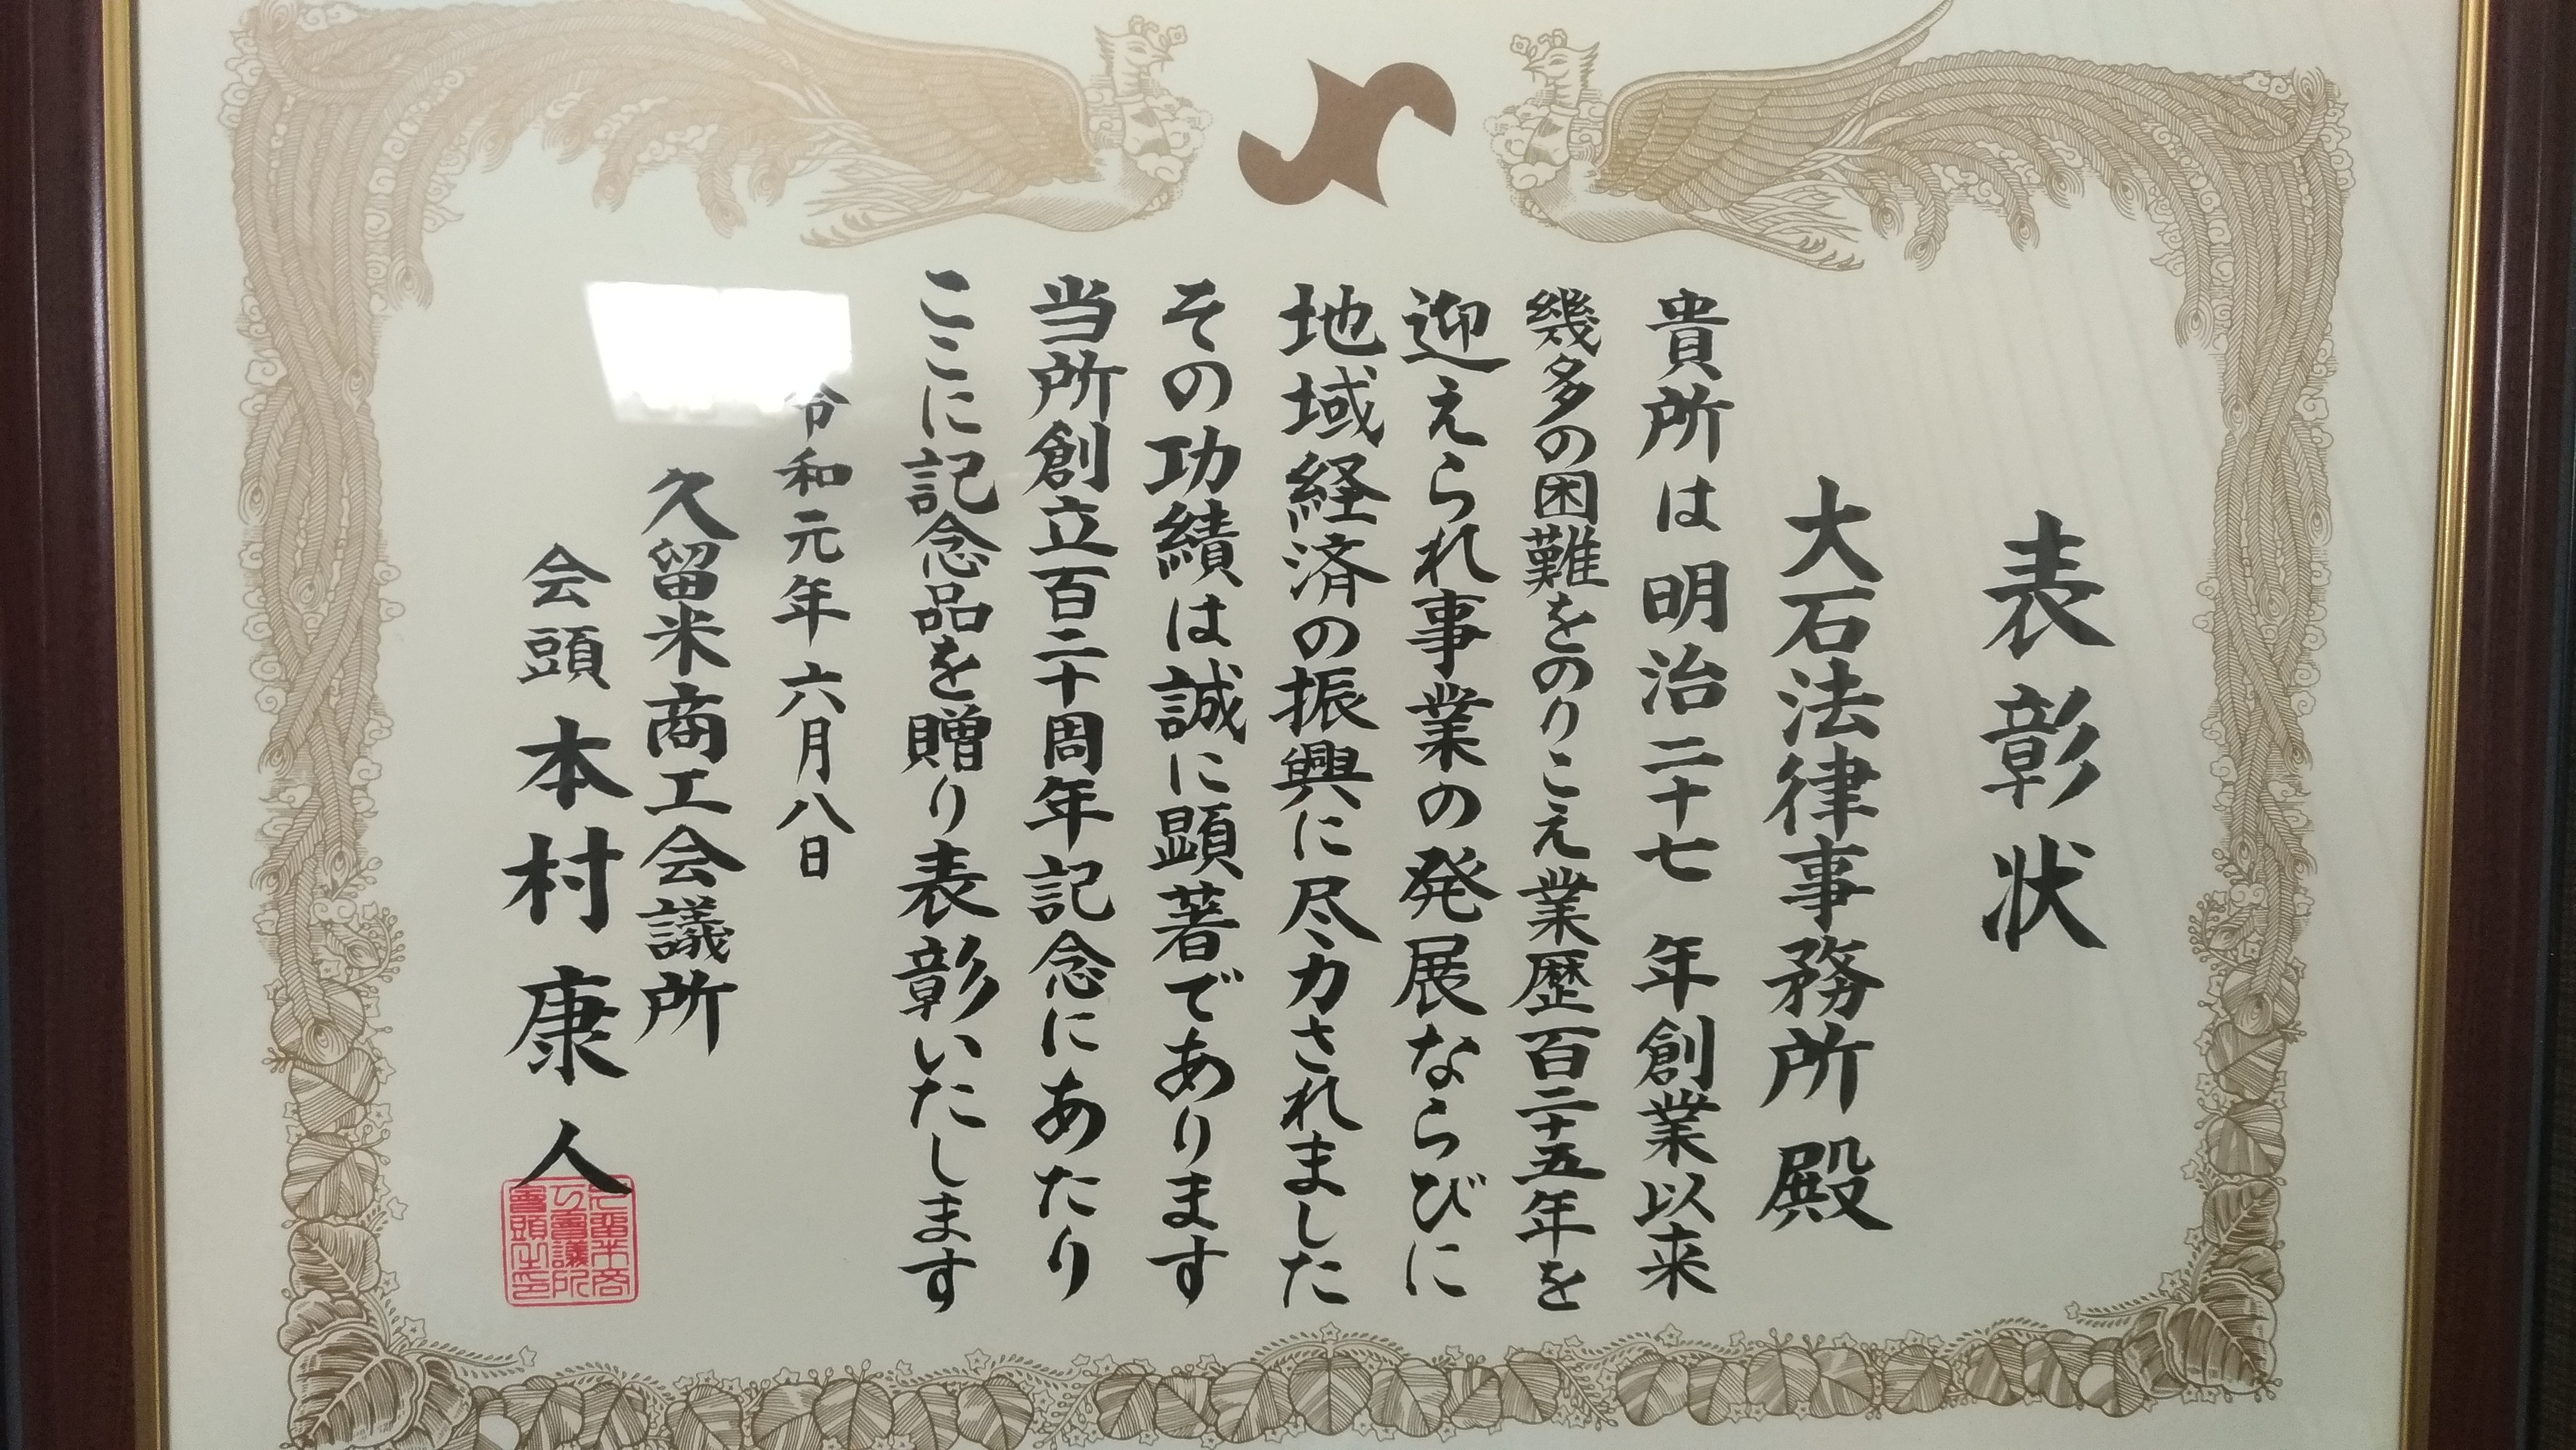 表彰状
大石法律事務所 殿
貴所は明治二十七年創業以来
幾多の困難をのりこえ業歴百二十五年を
迎えられ事業の発展ならびに
地域経済の振興に尽力されました
その功績は誠に顕著であります
当所創立百二十周年記念にあたり
ここに記念品を贈り表彰いたします
令和元年六月八日
久留米商工会議所
会頭 本村康人
久留米商
工會議所
會頭之印